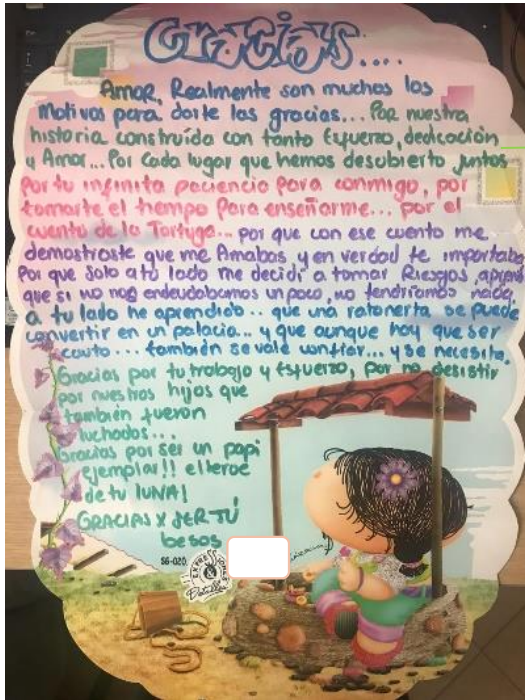 Gracias....
Amor, Realmente son muchos los
motivos para darte las gracias... Por nuestra
historia construida con tanto Esfuerzo, dedicación
y Amor... Por cada lugar que hemos descubierto juntos
Por tu infinita paciencia para conmigo, por
tomarte el tiempo para enseñarme... por el
cuento de la Tortuga... por que con ese cuento me
demostraste que me Amabas, y en verdad te importaba,
Por que solo a tu lado me decidí a tomar Riesgos, aprendí
que si no nos endeudabamos un poco, no tendríamos nada,
a tu lado he aprendido.. que una ratonera se puede
convertir en un palacio... y que aunque hay que ser
cauto... también se vale confiar... y se necesita.
Gracias por tu trabajo y esfuerzo, por no desistir
por nuestros hijos que
también fueron
luchados...
Gracias por ser un papi
ejemplar!! el heroe
de tu LUNA!
GRACIAS X SER TÚ
besos
SG-020
Detalles